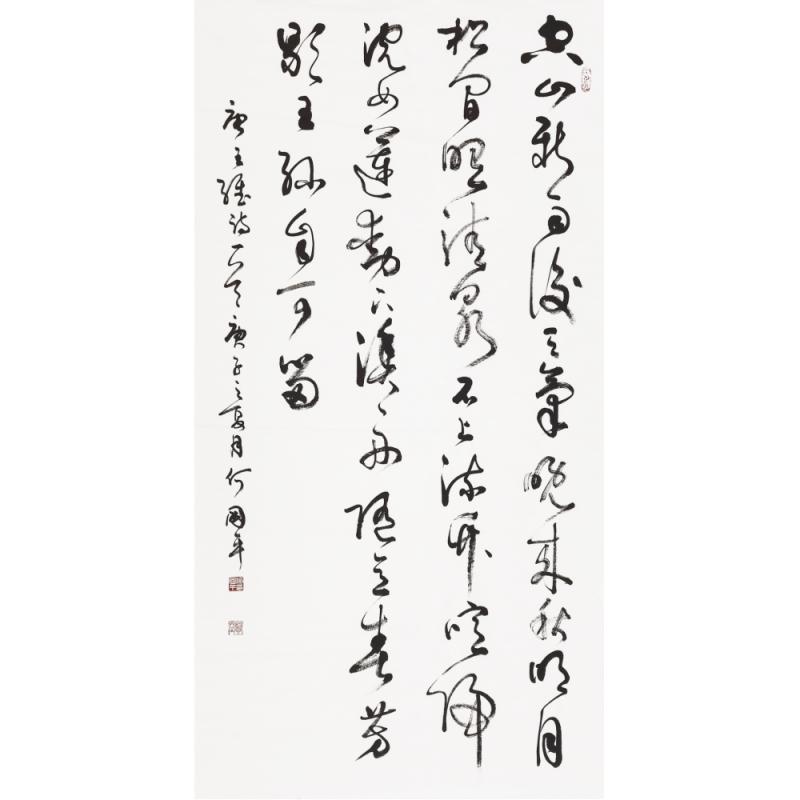 空山新雨後天氣晚来秋明月
松間照清泉石上流竹喧歸
浣女蓮動下漁舟随意春芳
歇王孫自可留
唐王維詩一首庚子之夏月何國平